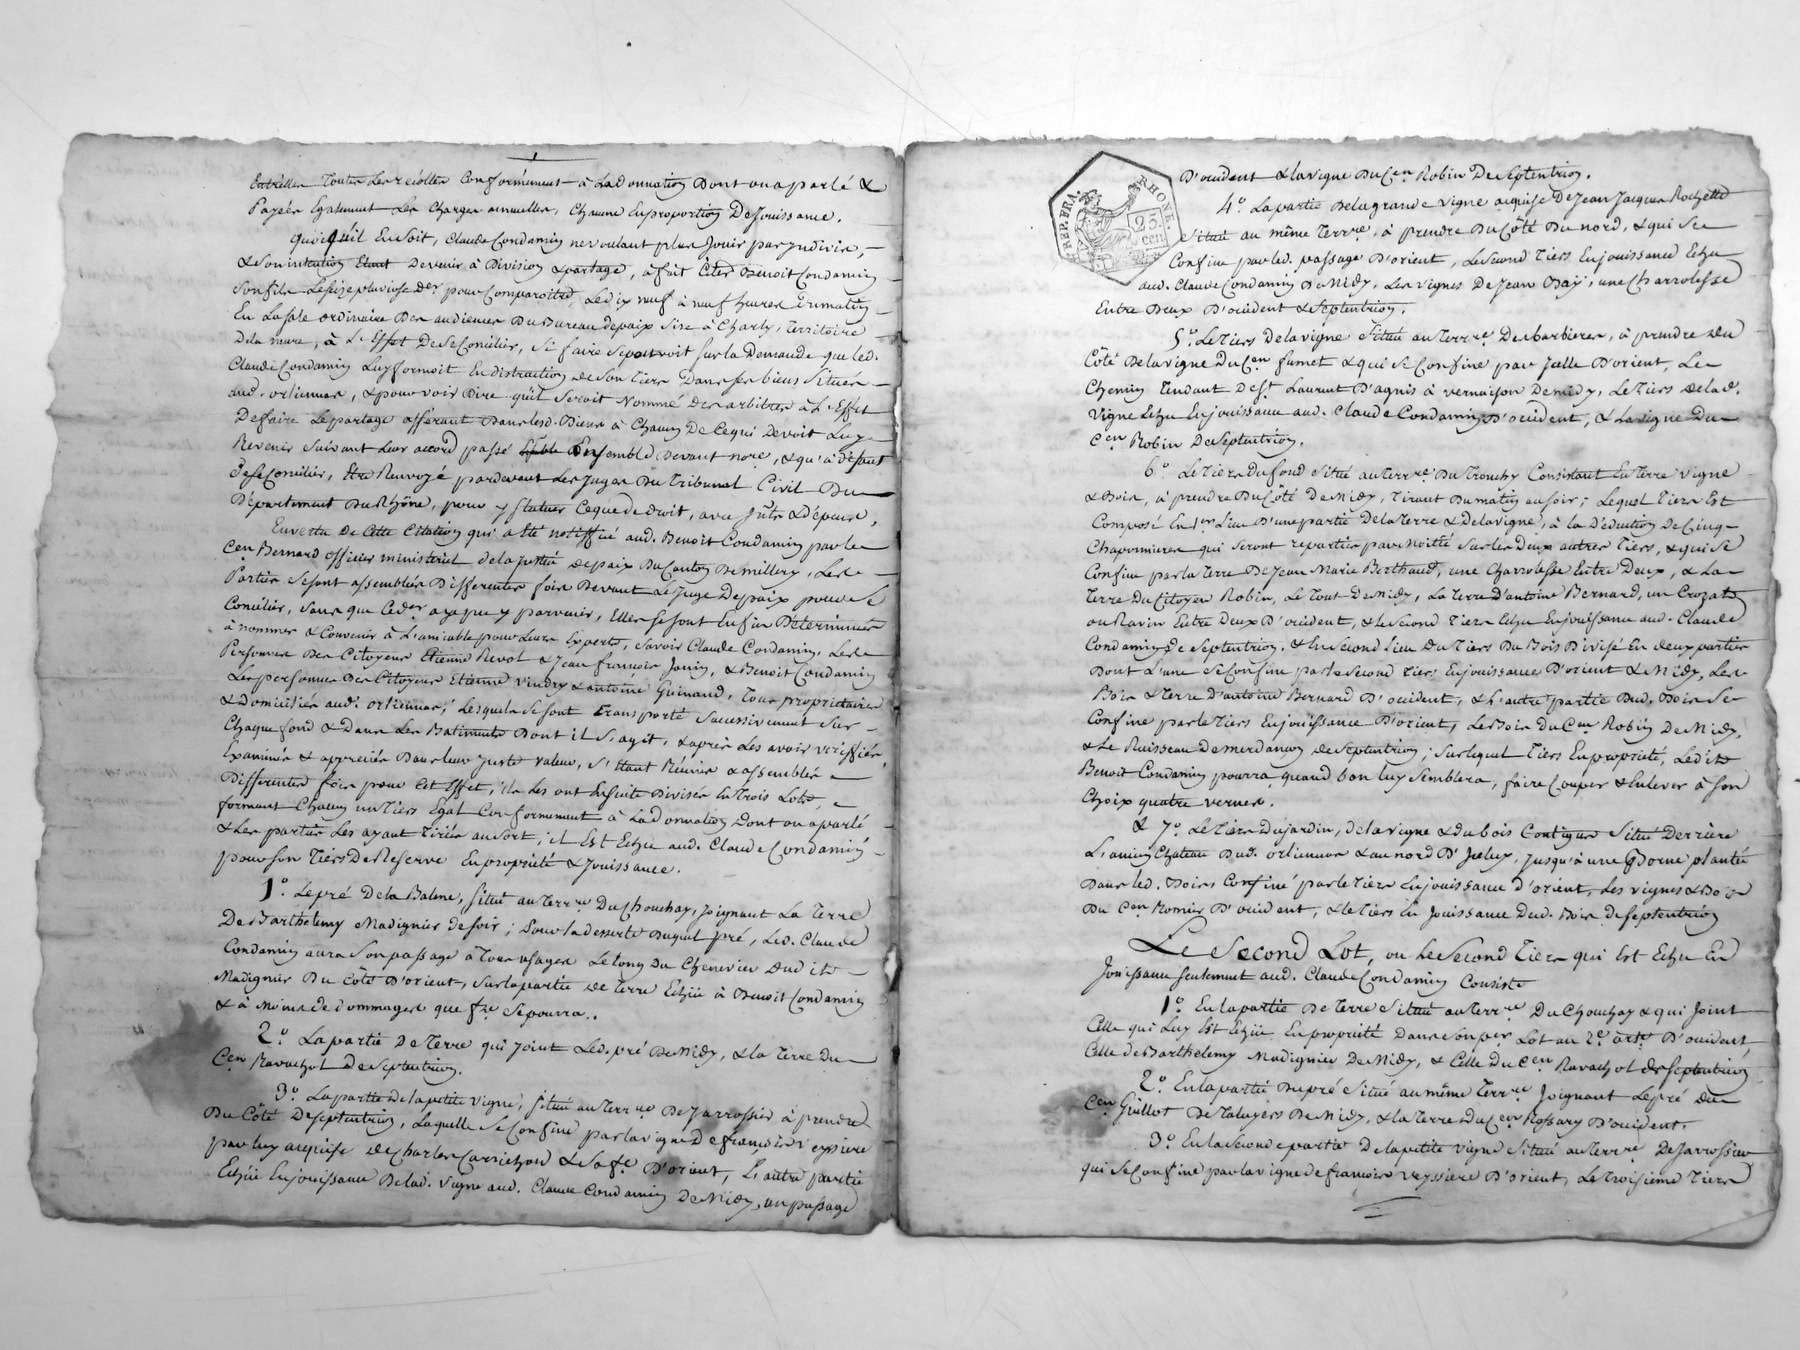 Entr'elles Toutes les recoltes Conformement à la Donnation Dont on a parlé &
Payées Egalement Les Charges annuelles, Chacune En proportion De Jouissance.
Quoiqu'il En Soit, Claude Condamin ne voulant plus Jouir par yndivis,
& Son intention Etant De venir à Division & partage, à fait Citer Benoit Condamin
Son fils Le seize pluviose Der pour Comparoitre, Le dix neuf à neuf heures Du matin
En La Sale ordinaire Des audiences Du Bureau de paix Sise à Charly, Territoire
De la mure, à L'Effet De Se Concilier, Si faire Se pouvoit Sur la Demande que led.
Claude Condamin Luy formoit En distraction de Son Tiers Dans les biens Situés
aud. orlienas, & pour voir Dire qu'il Seroit Nommé Des arbitres à L'Effet
De faire Le partage afferant Dans lesd. Biens à Chacun De Ce qui Devoit Luy
Revenir Suivant Leur accord passé Ensemble Devant nore, & qu'à défaut
de Se Concilier, Etre Renvoyé pardevant Les Juges Du Tribunal Civil Du
Département Du Rhône, pour y Statuer Ce que de droit, avec Jnts & Dépens.
En vertu De Cette Citation qui a Eté notiffiée aud. Benoit Condamin par le
Cen Bernard officier ministeriel de la justice de paix Du Canton De millery, Les
Parties Se sont assemblées Differentes fois Devant Le Juge De paix pour Se
Concilier, Sans que Ceder aye pu y parvenir, Elles Se sont Enfin Déterminées
à nommer & Convenir à L'amiable pour Leurs Experts, Savoir Claude Condamin, Les
Personnes Des Citoyens Etienne Revol & Jean françois Jonin, & Benoit Condamin
Les personnes Des Citoyens Etienne Vindry & antoine Guinand, Tous proprietaires
& Domiciliés aud. orlienas, Lesquels Se sont Transporté Successivement Sur
Chaque fond & Dans Les Batiments Dont il S'agit, & après Les avoir veriffiés,
Examinés & appreciés Dans leur juste valeur, S'Etant Réunis & assemblés
Differentes fois pour Cet Effet, ils Les ont Ensuite Divisés En Trois Lots,
formant Chacun un Tiers Egal Conformement à La Donnation Dont on a parlé
& Les parties Les ayant Tirés au Sort, il Est Echu aud. Claude Condamin
pour Son Tiers De Reserve En propriété & Jouissance.
1°. Le pré De la Balme, Situé au Terrre Du Chouchay, joignant La Terre
De Barthelemy Madignier de Soir; pour la desserte Duquel pré, Led. Claude
Condamin aura Son passage à Tous usages Le long Du Chenevier Dudit
Madignier Du Côté D'orient, Sur la partie de Terre Echüe à Benoit Condamin
& à Moins de dommages que fre Se pourra.
2°. La partie De Terre qui joint Led. pré De Midy, & la Terre Du
Cen Ravachol De Septentrion.
3°. La partie De la petite vigne, Située au Terrre De Jarrossin à prendre
Du Côté Deseptentrion, Laquelle Se Confine par la vigne De françois veyssiere
par luy acquise de Charles Carrichon & Sa fe D'orient, L'autre partie
Echüe En jouissance De lad. vigne aud. Claude Condamin De Midy, un passage
REP. FRA.
RHONE.
25
cen
D'occident & la vigne Du Cen Robin De Septentrion.
4°. La partie De la grande vigne acquise De Jean Jacques Rochette
Située au même Terrre, à prendre Du Côté Du nord, & qui Se
Confine par led. passage D'orient, Le Second Tiers En jouissance Echu
aud. Claude Condamin De Midy, Les vignes De Jean Bäy, une Charrolesse
Entre Deux D'occident & Septentrion.
5°. Le Tiers De la vigne Située au Terrre Des barbieres, à prendre Du
Côté De la vigne Du Cen fumet & qui Se Confine par Jcelle D'orient, Le
Chemin Tendant De St. Laurent D'agnis à vernaison De midy, Le Tiers De lad.
Vigne Echu En jouissance aud. Claude Condamin D'occident, & La vigne Du
Cen Robin De Septentrion.
6°. Le Tiers Du fond Situé au Terrre Du Tronchy Consistant En Terre vigne
& Bois, à prendre Du Côté De Midy, Tirant Du matin au Soir; Lequel Tiers Est
Composé En 1er Lieu D'une partie De la Terre & De la vigne, à la Déduction De Cinq
Chaponnieres qui Seront reparties par Moitié Sur les Deux autres Tiers, & qui Se
Confine par la Terre De Jean Marie Berthaud, une Charrolesse Entre Deux, & La
Terre Du Citoyen Robin, Le Tout De Midy, La Terre D'antoine Bernard, un Crozat
ou Ravin Entre Deux D'occident, & le Second Tiers Echu En jouissance aud. Claude
Condamin De Septentrion. & En Second Lieu Du Tiers Du Bois Divisé En deux parties
Dont L'une Se Confine par le Second Tiers En jouissance D'orient & Midy, Les
Bois & Terre D'antoine Bernard D'occident, & L'autre partie Dud. Bois Se
Confine par le Tiers En jouissance D'orient, Le Bois Du Cen Robin De Midy,
& Le Ruisseau De merdanson de Septentrion; Sur lequel Tiers En propriété, Ledit
Benoit Condamin pourra quand bon luy Semblera, faire Couper & Enlever à Son
Choix quatre vernes.
& 7°. Le Tiers Du jardin, de la vigne & du bois Contigus Situé Derriere
L'ancien Chateau Dud. orlienas & au nord D'Jcelux, Jusqu'à une Borne plantée
Dans led. Bois Confiné par le Tiers En jouissance d'orient, Les vignes & Bois
Du Cen Romier D'occident, & le Tiers En Jouissance Dud. Bois De Septentrion
Le Second Lot, ou Le Second Tiers qui Est Echu En
Jouissance Seulement aud. Claude Condamin Consiste
1°. En La partie De Terre Située au Terrre Du Chouchay & qui Joint
Celle qui Luy Est Echüe En propriété Dans Son per Lot au 2e arte D'occident,
Celle de Barthelemy Madignier De Midy, & Celle Du Cen Ravachol de Septentrion
2°. En La partie Du pré Situé au même Terrre Joignant Le pré Du
Cen Guillot De Taluyers De Midy, & la Terre Du Cen Rossary D'occident.
3°. En la Seconde partie De la petite vigne Située au Terrre De Jarrossin
qui Se Confine par la vigne de françois veyssiere D'orient, Le Troisieme Tiers